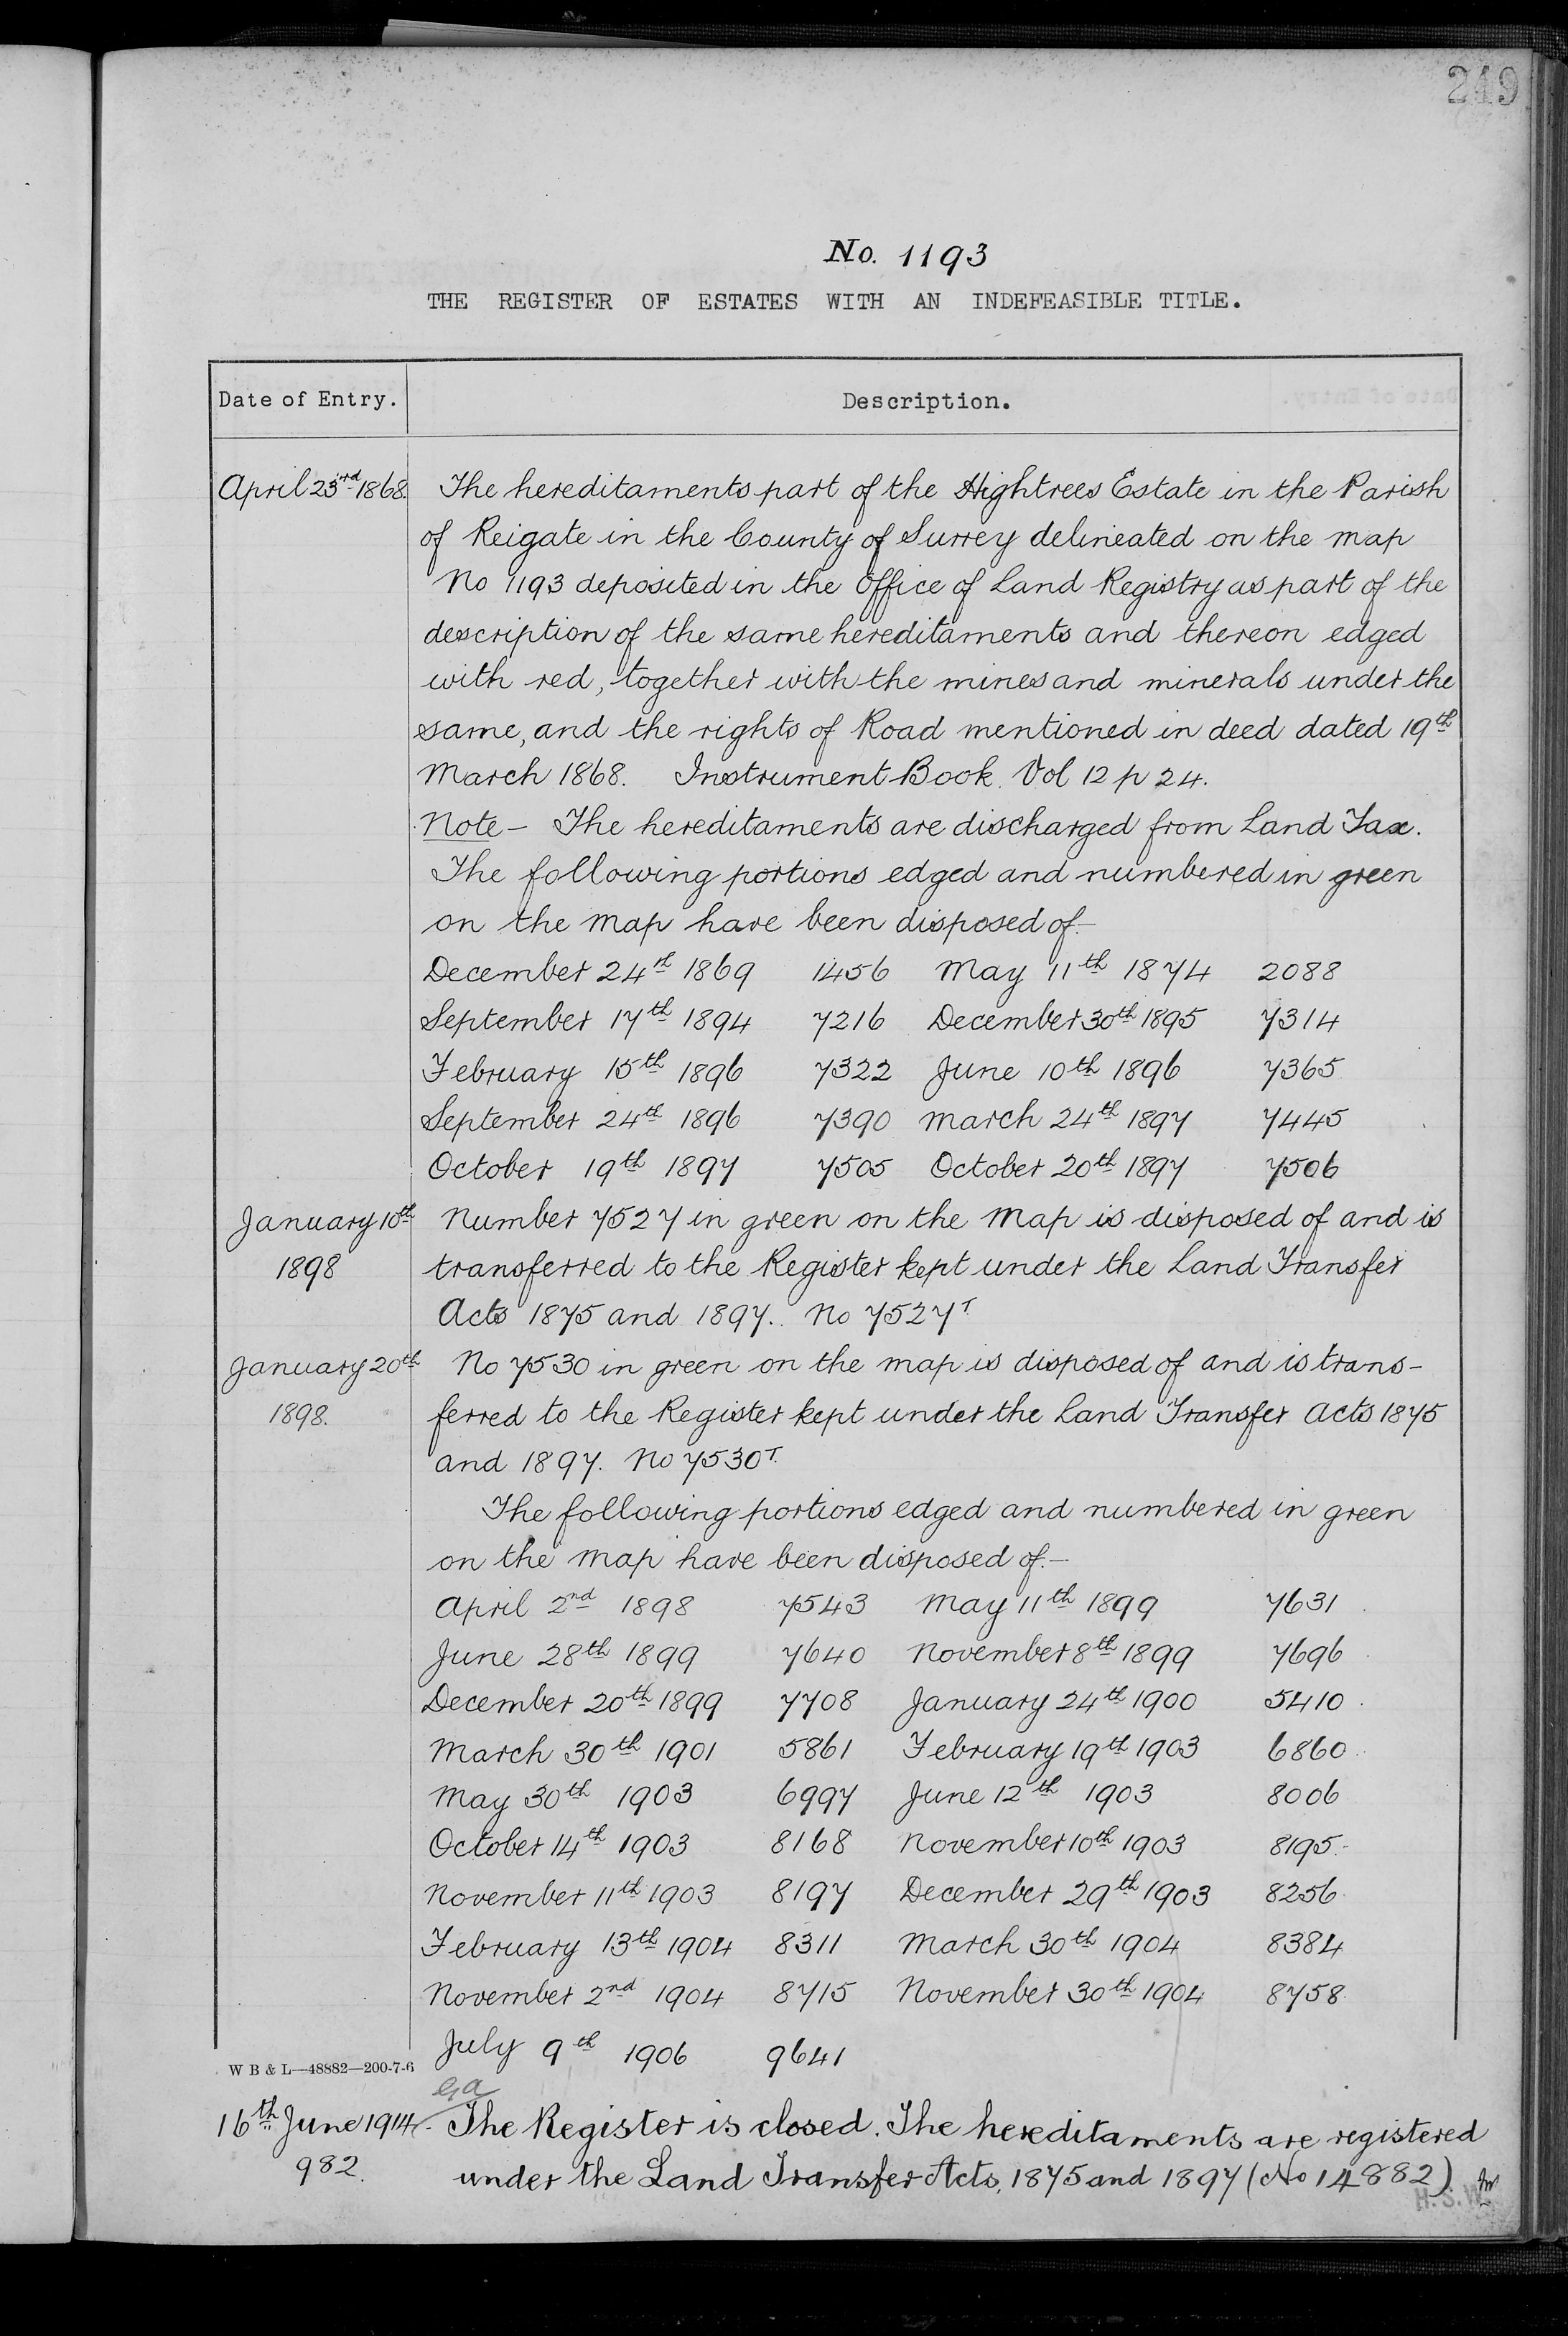 249
No. 1193
THE REGISTER OF ESTATES WITH AN INDEFEASIBLE TITLE.
Date of Entry. Description.
April 23rd 1868. The hereditaments part of the Hightrees Estate in the Parish
of Reigate in the County of Surrey delineated on the map
No 1193 deposited in the Office of Land Registry as part of the
description of the same hereditaments and thereon edged
with red, together with the mines and minerals under the
same, and the rights of Road mentioned in deed dated 19th
March 1868. Instrument Book. Vol 12 p 24.
Note – The hereditaments are discharged from Land Tax.
The following portions edged and numbered in green
on the map have been disposed of –
December 24th 1869 1456 May 11th 1874 2088
September 17th 1894 7216 December 30th 1895 7314
February 15th 1896 7322 June 10th 1896 7365
September 24th 1896 7390 March 24th 1897 7445
October 19th 1897 7505 October 20th 1897 7506
January 10th Number 7527 in green on the map is disposed of and is
1898 transferred to the Register kept under the Land Transfer
Acts 1875 and 1897. No 7527T.
January 20th No 7530 in green on the map is disposed of and is trans-
1898. ferred to the Register kept under the Land Transfer Acts 1875
and 1897. No 7530T.
The following portions edged and numbered in green
on the map have been disposed of. –
April 2nd 1898 7543 May 11th 1899 7631
June 28th 1899 7640 November 8th 1899 7696
December 20th 1899 7708 January 24th 1900 5410
March 30th 1901 5861 February 19th 1903 6860
May 30th 1903 6997 June 12th 1903 8006
October 14th 1903 8168 November 10th 1903 8195
November 11th 1903 8197 December 29th 1903 8256
February 13th 1904 8311 March 30th 1904 8384
November 2nd 1904 8715 November 30th 1904 8758
July 9th 1906 9641
W B & L—48882—200-7-6
16th June 1914. The Register is closed. The hereditaments are registered
982. under the Land Transfer Acts, 1875 and 1897 (No 14882)
H.S.W.